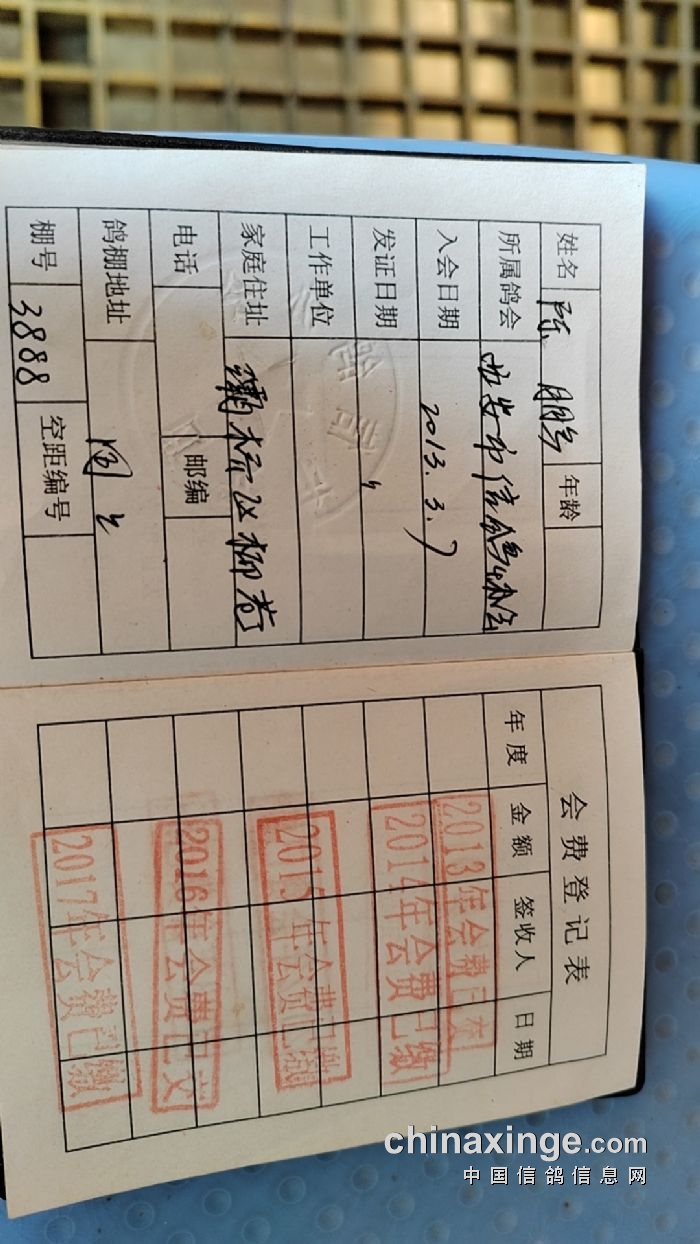 姓名 陈鹏 年龄
所属鸽会 西安市信鸽协会
入会日期 2013.3.7
发证日期 〃
工作单位
家庭住址 灞桥区柳巷
电话 邮编
鸽棚地址 同上
棚号 3888 空距编号
会费登记表
年度 金额 签收人 日期
2013年会费已交
2014年会费已缴
2015年会费已缴
2016年会费已交
2017年会费已缴
chinaxinge.com
中国信鸽信息网